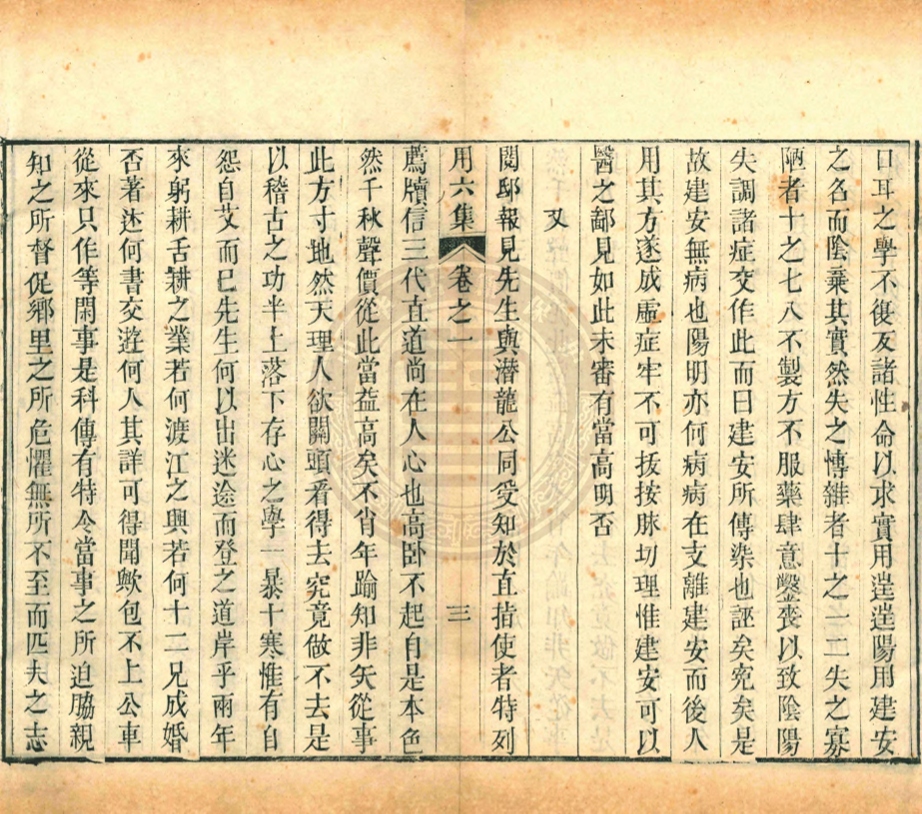 口耳之學不復反諸性命以求實用逞逞陽用建安
之名而陰乘其實然失之慱雜者十之一二失之寡
陋者十之七八不製方不服藥肆意鑿喪以致陰陽
失調諸症交作此而曰建安所傳染也誣矣寃矣是
故建安無病也陽明亦何病病在支離建安而後人
用其方遂成虛症牢不可拔按脉切理惟建安可以
醫之鄙見如此未審有當高明否
又
閱邸報見先生與潛龍公同受知於直指使者特列
用六集 卷之一 三
薦牘信三代直道尚在人心也高卧不起自是本色
然千秋聲價從此當益高矣不肖年踰知非矢從事
此方寸地然天理人欲關頭看得去究竟做不去是
以稽古之功半上落下存心之學一暴十寒惟有自
怨自艾而已先生何以出迷途而登之道岸乎兩年
來躬耕舌耕之業若何渡江之興若何十二兄成婚
否著述何書交遊何人其詳可得聞歟包不上公車
從來只作等閑事是科傳有特令當事之所迫脇親
知之所督促鄉里之所危懼無所不至而匹夫之志